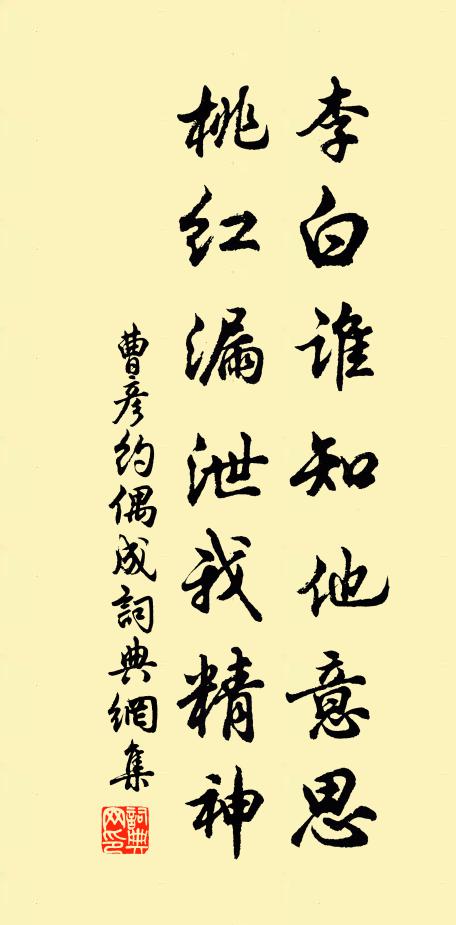 李白谁知他意思
桃红漏泄我精神
曹彦约偶成詞典網集
詞典网印